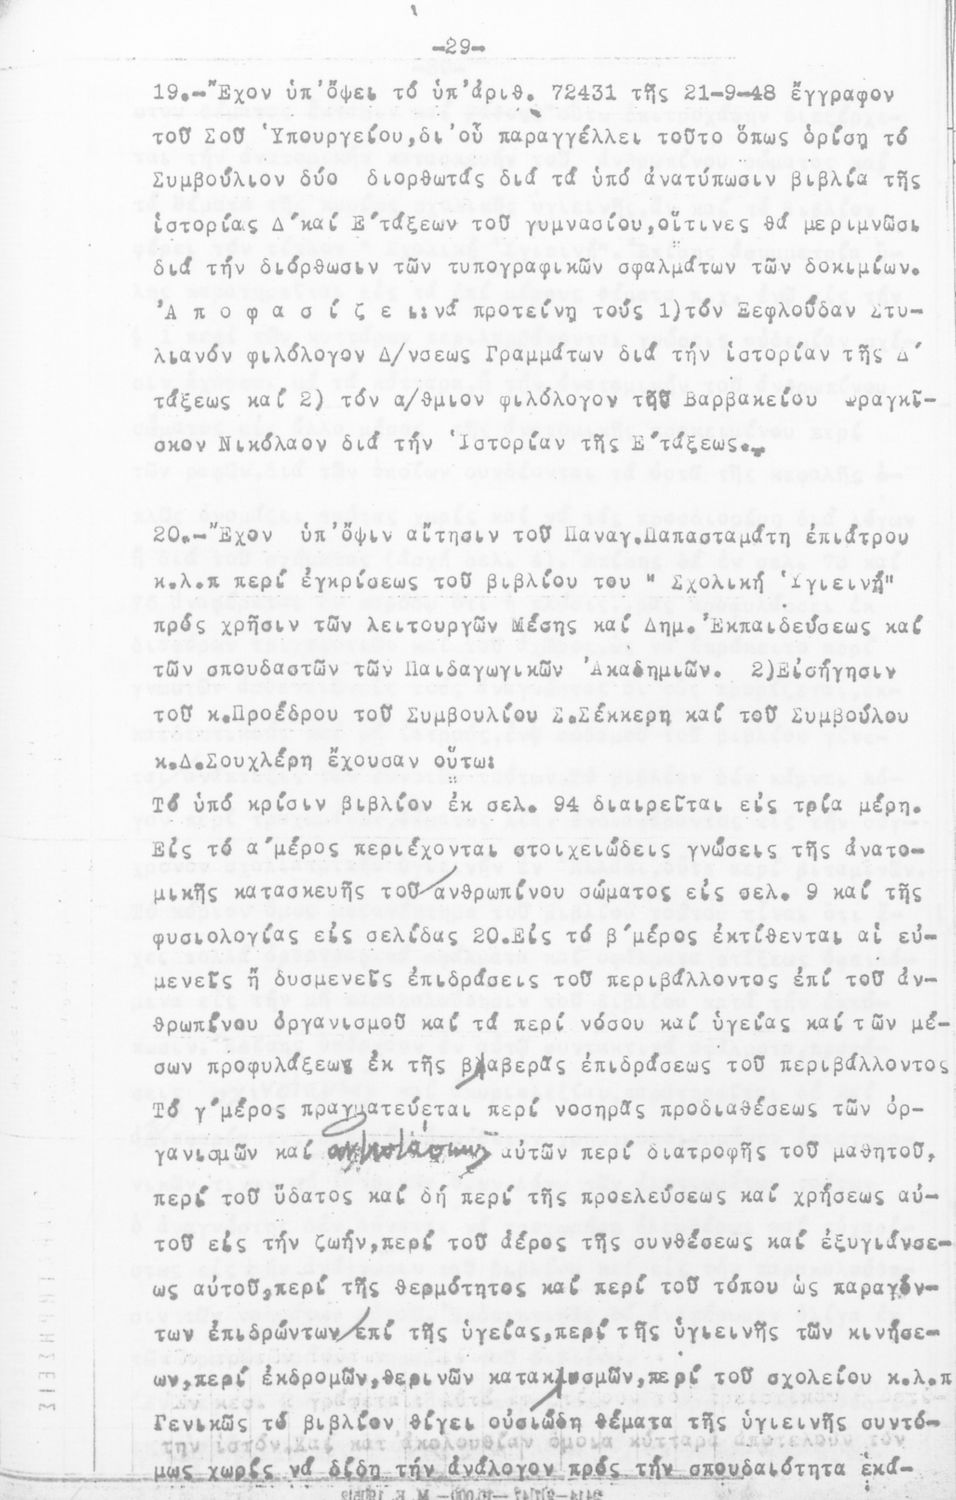 -29-
19.-Ἔχον ὑπ'ὄψει τό ὑπ'ἀριθ. 72431 τῆς 21-9-48 ἔγγραφον
τοῦ Σοῦ Ὑπουργείου,δι'οὗ παραγγέλλει τοῦτο ὅπως ὁρίσῃ τό
Συμβούλιον δύο διορθωτάς διά τά ὑπό ἀνατύπωσιν βιβλία τῆς
ἱστορίας Δ΄καί Ε΄τάξεων τοῦ γυμνασίου,οἵτινες θά μεριμνῶσι
διά τήν διόρθωσιν τῶν τυπογραφικῶν σφαλμάτων τῶν δοκιμίων.
Ἀ π ο φ α σ ί ζ ε ι:νά προτείνῃ τούς 1)τόν Ξεφλούδαν Στυ-
λιανόν φιλόλογον Δ/νσεως Γραμμάτων διά τήν ἱστορίαν τῆς Δ΄
τάξεως καί 2) τόν α/θμιον φιλόλογον τοῦ Βαρβακείου Φραγκῖ-
σκον Νικόλαον διά τήν Ἱστορίαν τῆς Ε΄τάξεως.-
20.-Ἔχον ὑπ'ὄψιν αἴτησιν τοῦ Παναγ.Παπασταμάτη ἐπιάτρου
κ.λ.π περί ἐγκρίσεως τοῦ βιβλίου του " Σχολική Ὑγιεινή"
πρός χρῆσιν τῶν λειτουργῶν Μέσης καί Δημ.Ἐκπαιδεύσεως καί
τῶν σπουδαστῶν τῶν Παιδαγωγικῶν Ἀκαδημιῶν. 2)Εἰσήγησιν
τοῦ κ.Προέδρου τοῦ Συμβουλίου Σ.Σέκκερη καί τοῦ Συμβούλου
κ.Δ.Σουχλέρη ἔχουσαν οὕτω:
Τό ὑπό κρίσιν βιβλίον ἐκ σελ. 94 διαιρεῖται εἰς τρία μέρη.
Εἰς τό α΄μέρος περιέχονται στοιχειώδεις γνώσεις τῆς ἀνατο-
μικῆς κατασκευῆς τοῦ ἀνθρωπίνου σώματος εἰς σελ. 9 καί τῆς
φυσιολογίας εἰς σελίδας 20.Εἰς τό β΄μέρος ἐκτίθενται αἱ εὐ-
μενεῖς ἤ δυσμενεῖς ἐπιδράσεις τοῦ περιβάλλοντος ἐπί τοῦ ἀν-
θρωπίνου ὀργανισμοῦ καί τά περί νόσου καί ὑγείας καί τῶν μέ-
σων προφυλάξεως ἐκ τῆς βλαβερᾶς ἐπιδράσεως τοῦ περιβάλλοντος
Τό γ΄μέρος πραγματεύεται περί νοσηρᾶς προδιαθέσεως τῶν ὀρ-
γανισμῶν καί αὐτῶν περί διατροφῆς τοῦ μαθητοῦ,
περί τοῦ ὕδατος καί δή περί τῆς προελεύσεως καί χρήσεως αὐ-
τοῦ εἰς τήν ζωήν,περί τοῦ ἀέρος τῆς συνθέσεως καί ἐξυγιάνσε-
ως αὐτοῦ,περί τῆς θερμότητος καί περί τοῦ τόπου ὡς παραγόν-
των ἐπιδρώντων ἐπί τῆς ὑγείας,περί τῆς ὑγιεινῆς τῶν κινήσε-
ων,περί ἐκδρομῶν,θερινῶν κατακλυσμῶν,περί τοῦ σχολείου κ.λ.π
Γενικῶς τό βιβλίον θίγει οὐσιώδη θέματα τῆς ὑγιεινῆς συντό-
μως χωρίς νά δίδῃ τήν ἀνάλογον πρός τήν σπουδαιότητα ἑκά-